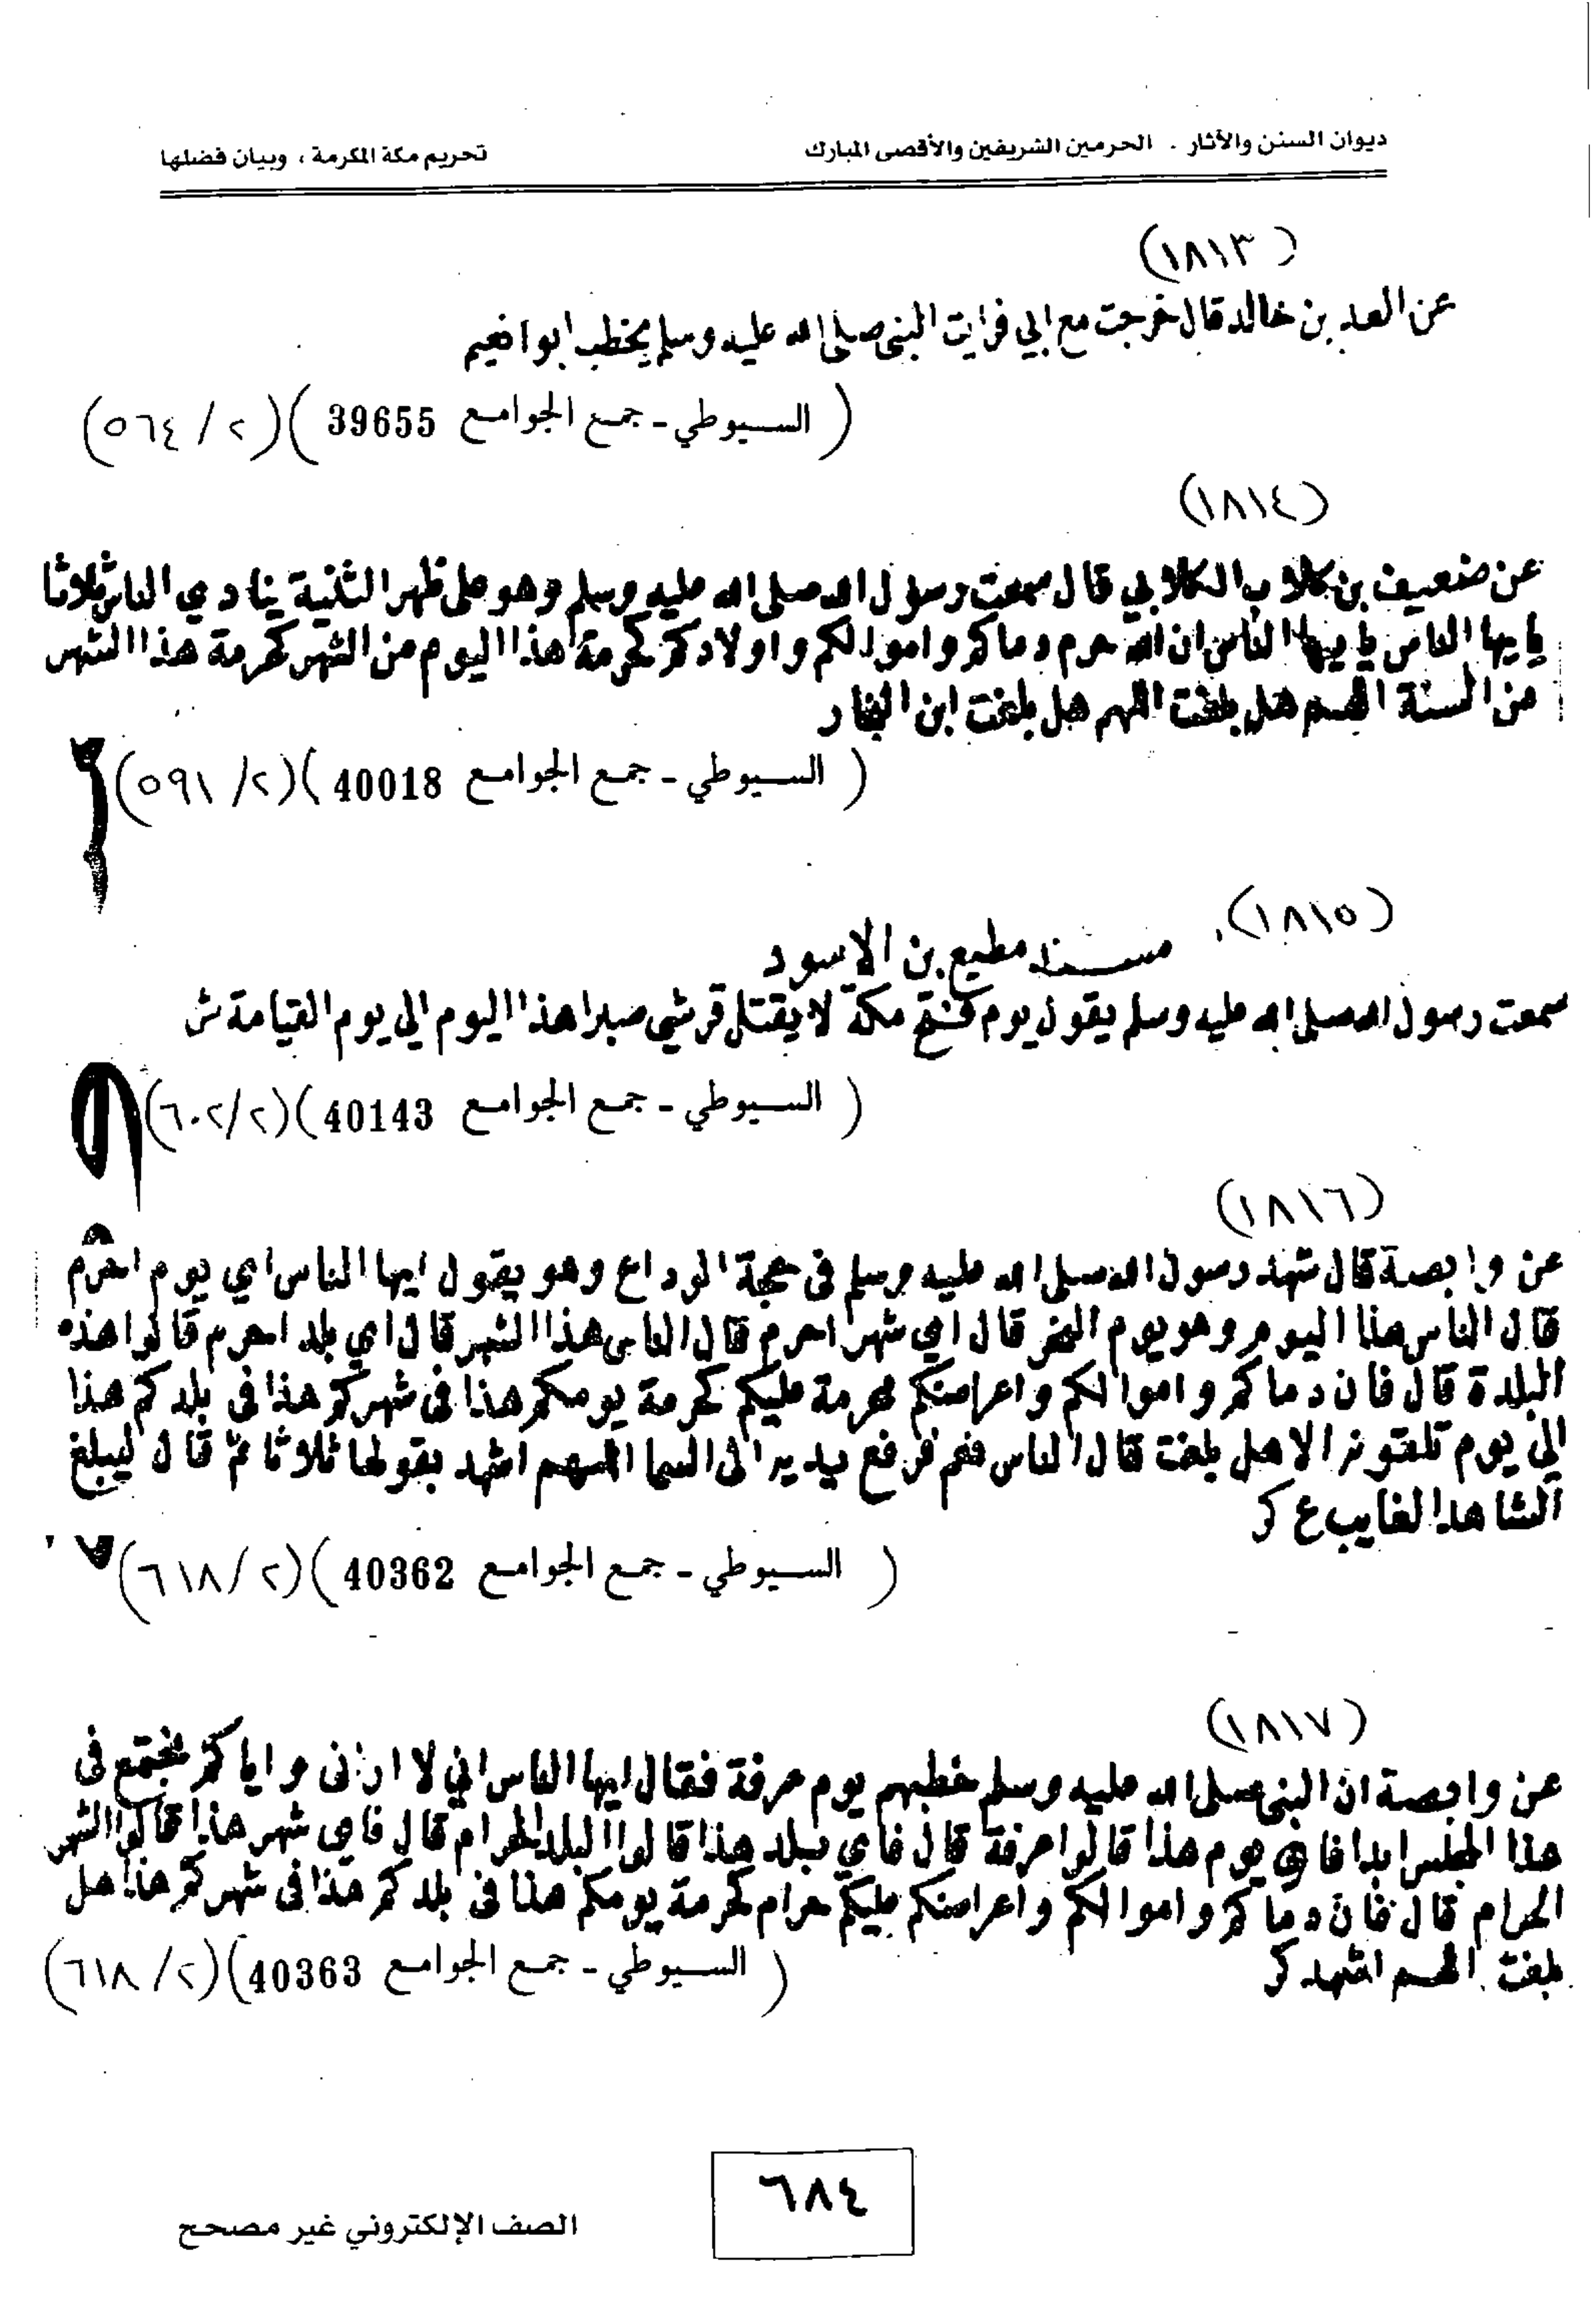 ديوان السنن والآثار . الحرمين الشريفين والأقصى المبارك
تحريم مكة المكرمة ، وبيان فضلها
(١٨١٣)
عن العد بن خالد قال خرجت مع ابي فرايت النبى صلى الله عليه وسلم يخطب ابو نعيم
( السيوطي - جمع الجوامع 39655 ) (٢ / ٥٦٤)
(١٨١٤)
عن ضعيف بن كلاب الكلابي قال سمعت رسول الله صلى الله عليه وسلم وهو على ظهر الثنية ينادي الناس ثلاثا
يايها الناس يا يها الناس ان الله حرم دماكم واموالكم واولادكم كحرمة هذا اليوم من الشهر كحرمة هذا الشهر
من السنة اللهم هل بلغت اللهم هل بلغت ابن النجار
( السيوطي - جمع الجوامع 40018 ) (٢ / ٥٩١)
(١٨١٥)
مسند مطيع بن الاسود
سمعت رسول الله صلى الله عليه وسلم يقول يوم فتح مكة لا يقتل قرشي صبرا هذا اليوم الي يوم القيامة ش
( السيوطي - جمع الجوامع 40143 ) (٢ / ٦٠٢)
(١٨١٦)
عن وابصة قال شهد رسول الله صلى الله عليه وسلم فى حجة الوداع وهو يقول ايها الناس اي يوم احرم
قال الناس هذا اليوم وهو يوم النحر قال اي شهر احرم قال الناس هذا الشهر قال اي بلد احرم قالوا هذه
البلدة قال فان دماكم واموالكم واعراضكم محرمة عليكم كحرمة يومكم هذا فى شهركم هذا فى بلدكم هذا
الي يوم تلقونه الا هل بلغت قال الناس نعم فرفع يديه الى السما اللهم اشهد يقولها ثلاثا ثم قال ليبلغ
الشاهد الغايب ع كر
( السيوطي - جمع الجوامع 40362 ) (٢ / ٦١٨)
(١٨١٧)
عن وابصة ان النبى صلى الله عليه وسلم خطبهم يوم عرفة فقال ايها الناس اني لا ارانى واياكم نجتمع فى
هذا المجلس ابدا فاي يوم هذا قالوا عرفة قال فاي بلد هذا قالوا البلد الحرام قال فاى شهر هذا قالوا الشهر
الحرام قال فان دماكم واموالكم واعراضكم عليكم حرام كحرمة يومكم هذا فى بلدكم هذا فى شهركم هذا هل
بلغت اللهم اشهد كر
( السيوطي - جمع الجوامع 40363 ) (٢ / ٦١٨)
٦٨٤
الصف الإلكتروني غير مصحح